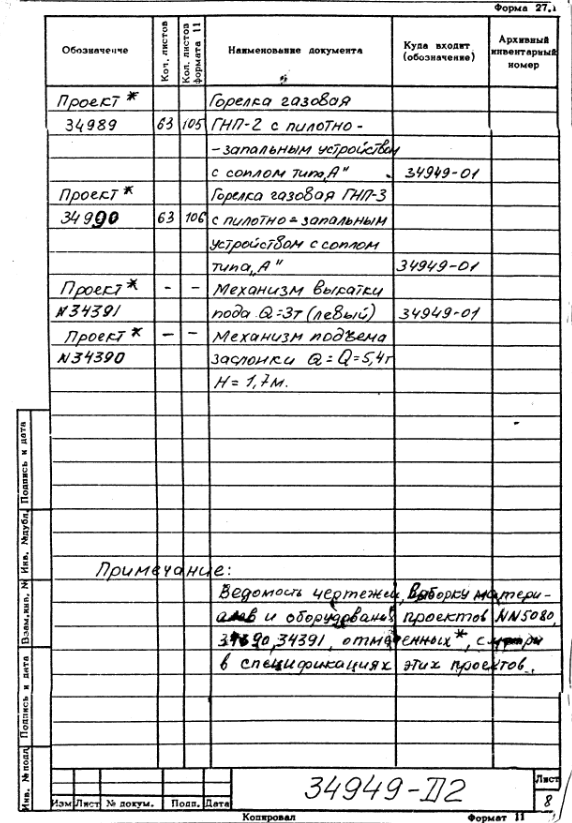 Форма 27.1
Обозначение Кол. листов Кол. листов формата 11 Наименование документа Куда входит (обозначение) Архивный инвентарный номер
Проект* Горелка газовая
34989 63 105 ГНП-2 с пилотно-
-запальным устройством
с соплом типа „А" 34949-01
Проект* Горелка газовая ГНП-3
34990 63 106 с пилотно-запальным
устройством с соплом
типа „А" 34949-01
Проект* - - Механизм выкатки
N34391 пода Q=3т (левый) 34949-01
Проект* - - Механизм подъема
N34390 заслонки Q=Q=5,4т
H=1,7м.
Примечание:
Ведомость чертежей, выборку матери-
алов и оборудования проектов NN5080,
34390, 34391, отмеченных*, смотри
в спецификациях этих проектов.
Инв. № подл. Подпись и дата Взам. инв. № Инв. № дубл. Подпись и дата
34949-II2
Лист
8
Изм Лист № докум. Подп. Дата
Копировал Формат 11